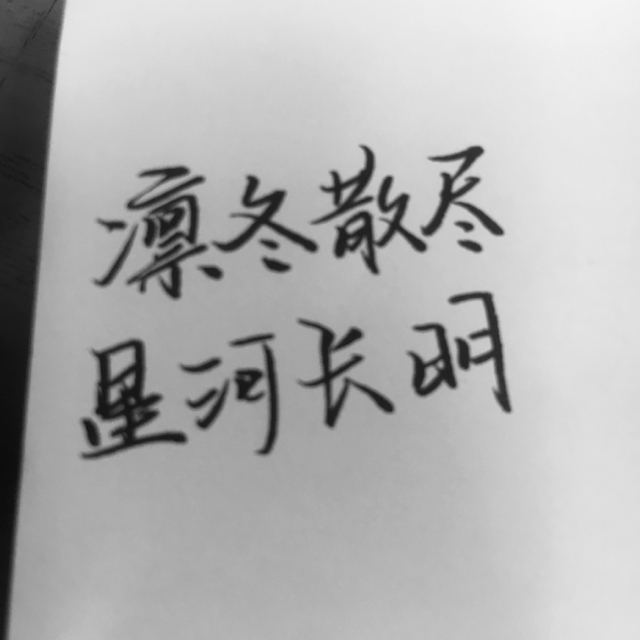 凛冬散尽
星河长明